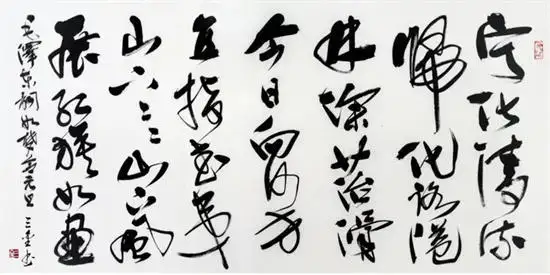 宁化清流
歸化路隘
林深苔滑
今日向何方
直指武夷
山下〻〻山下風
展红旗如画
毛澤东词如梦令元旦 三